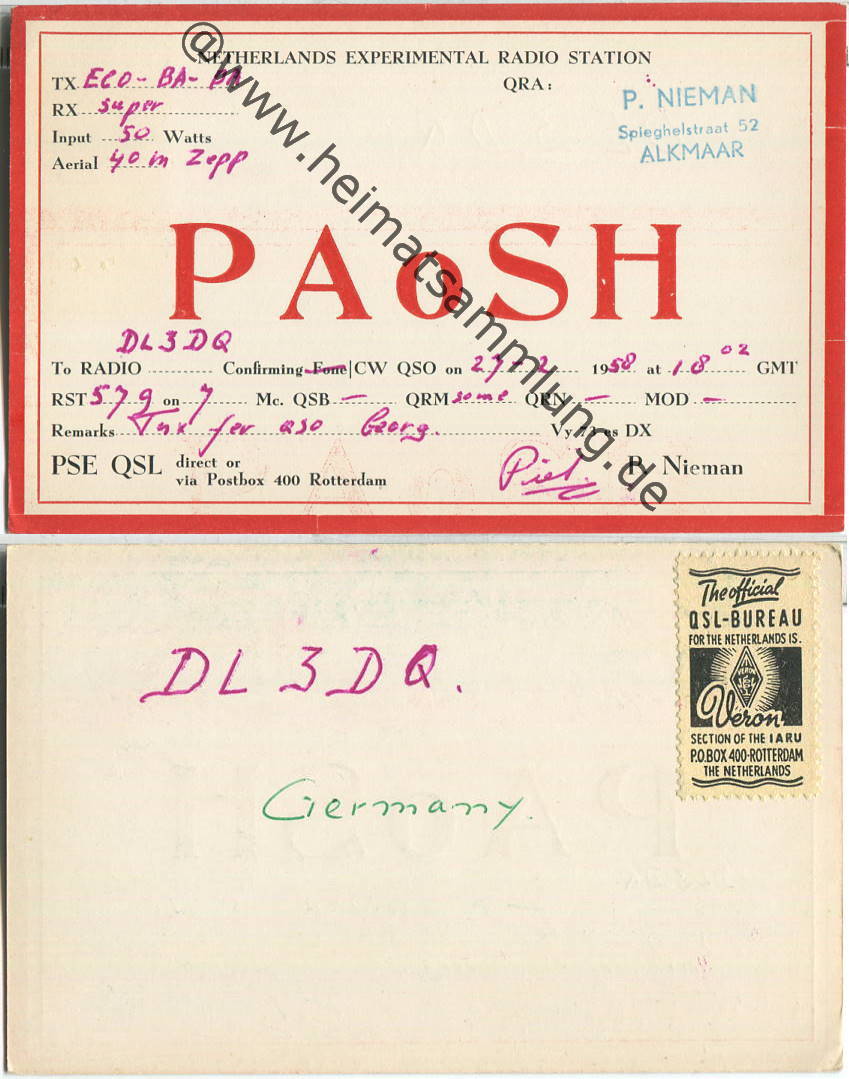 NETHERLANDS EXPERIMENTAL RADIO STATION
TX ECO - BA - PA
QRA:
RX super
P. NIEMAN
Input 50 Watts
Spieghelstraat 52
Aerial 40 m Zepp
ALKMAAR
@www.heimatsammlung.de
PAoSH
DL3DQ
To RADIO Confirming Fone|CW QSO on 1958 at 18 02 GMT
RST 579 on 7 Mc. QSB — QRM some QRN — MOD —
Remarks Tnx fer QSO Georg. Vy 73 es DX
PSE QSL direct or via Postbox 400 Rotterdam
Piet.
P. Nieman
The official
QSL-BUREAU
FOR THE NETHERLANDS IS.
Veron
SECTION OF THE IARU
P.O.BOX 400-ROTTERDAM
THE NETHERLANDS
DL3DQ.
Germany.